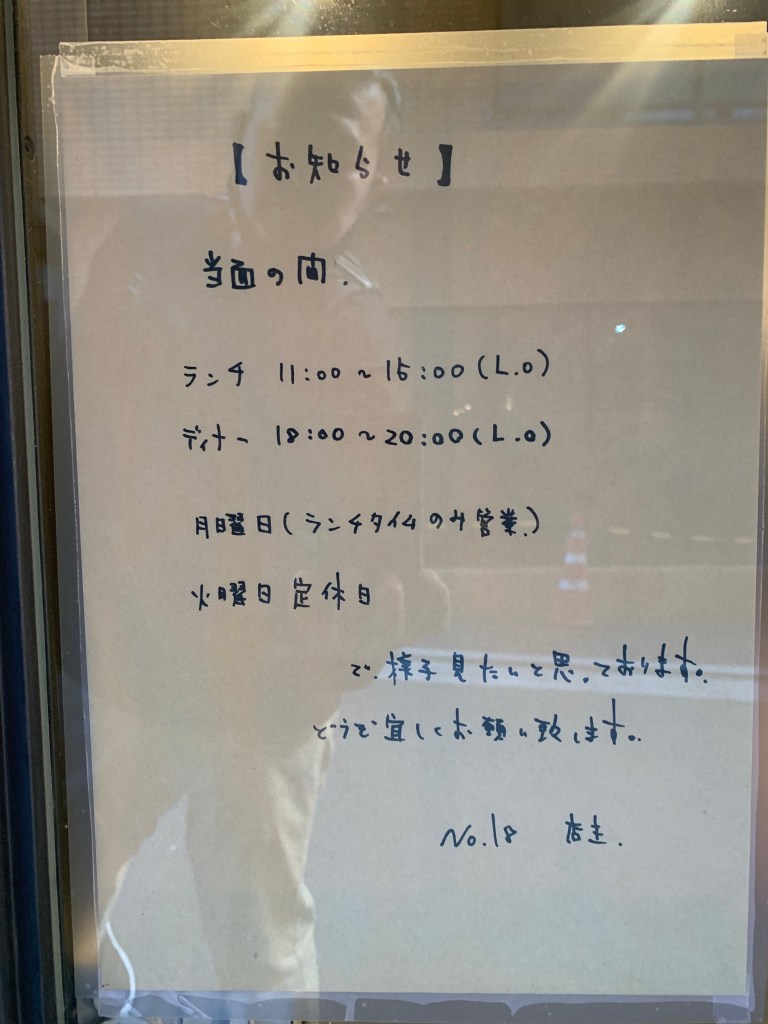 【お知らせ】
当面の間.
ランチ 11:00~15:00(L.O)
ディナー 18:00~20:00(L.O)
月曜日(ランチタイムのみ営業.)
火曜日定休日
で.様子見たいと思っております。
どうぞ宜しくお願い致します。
No.18 店主.